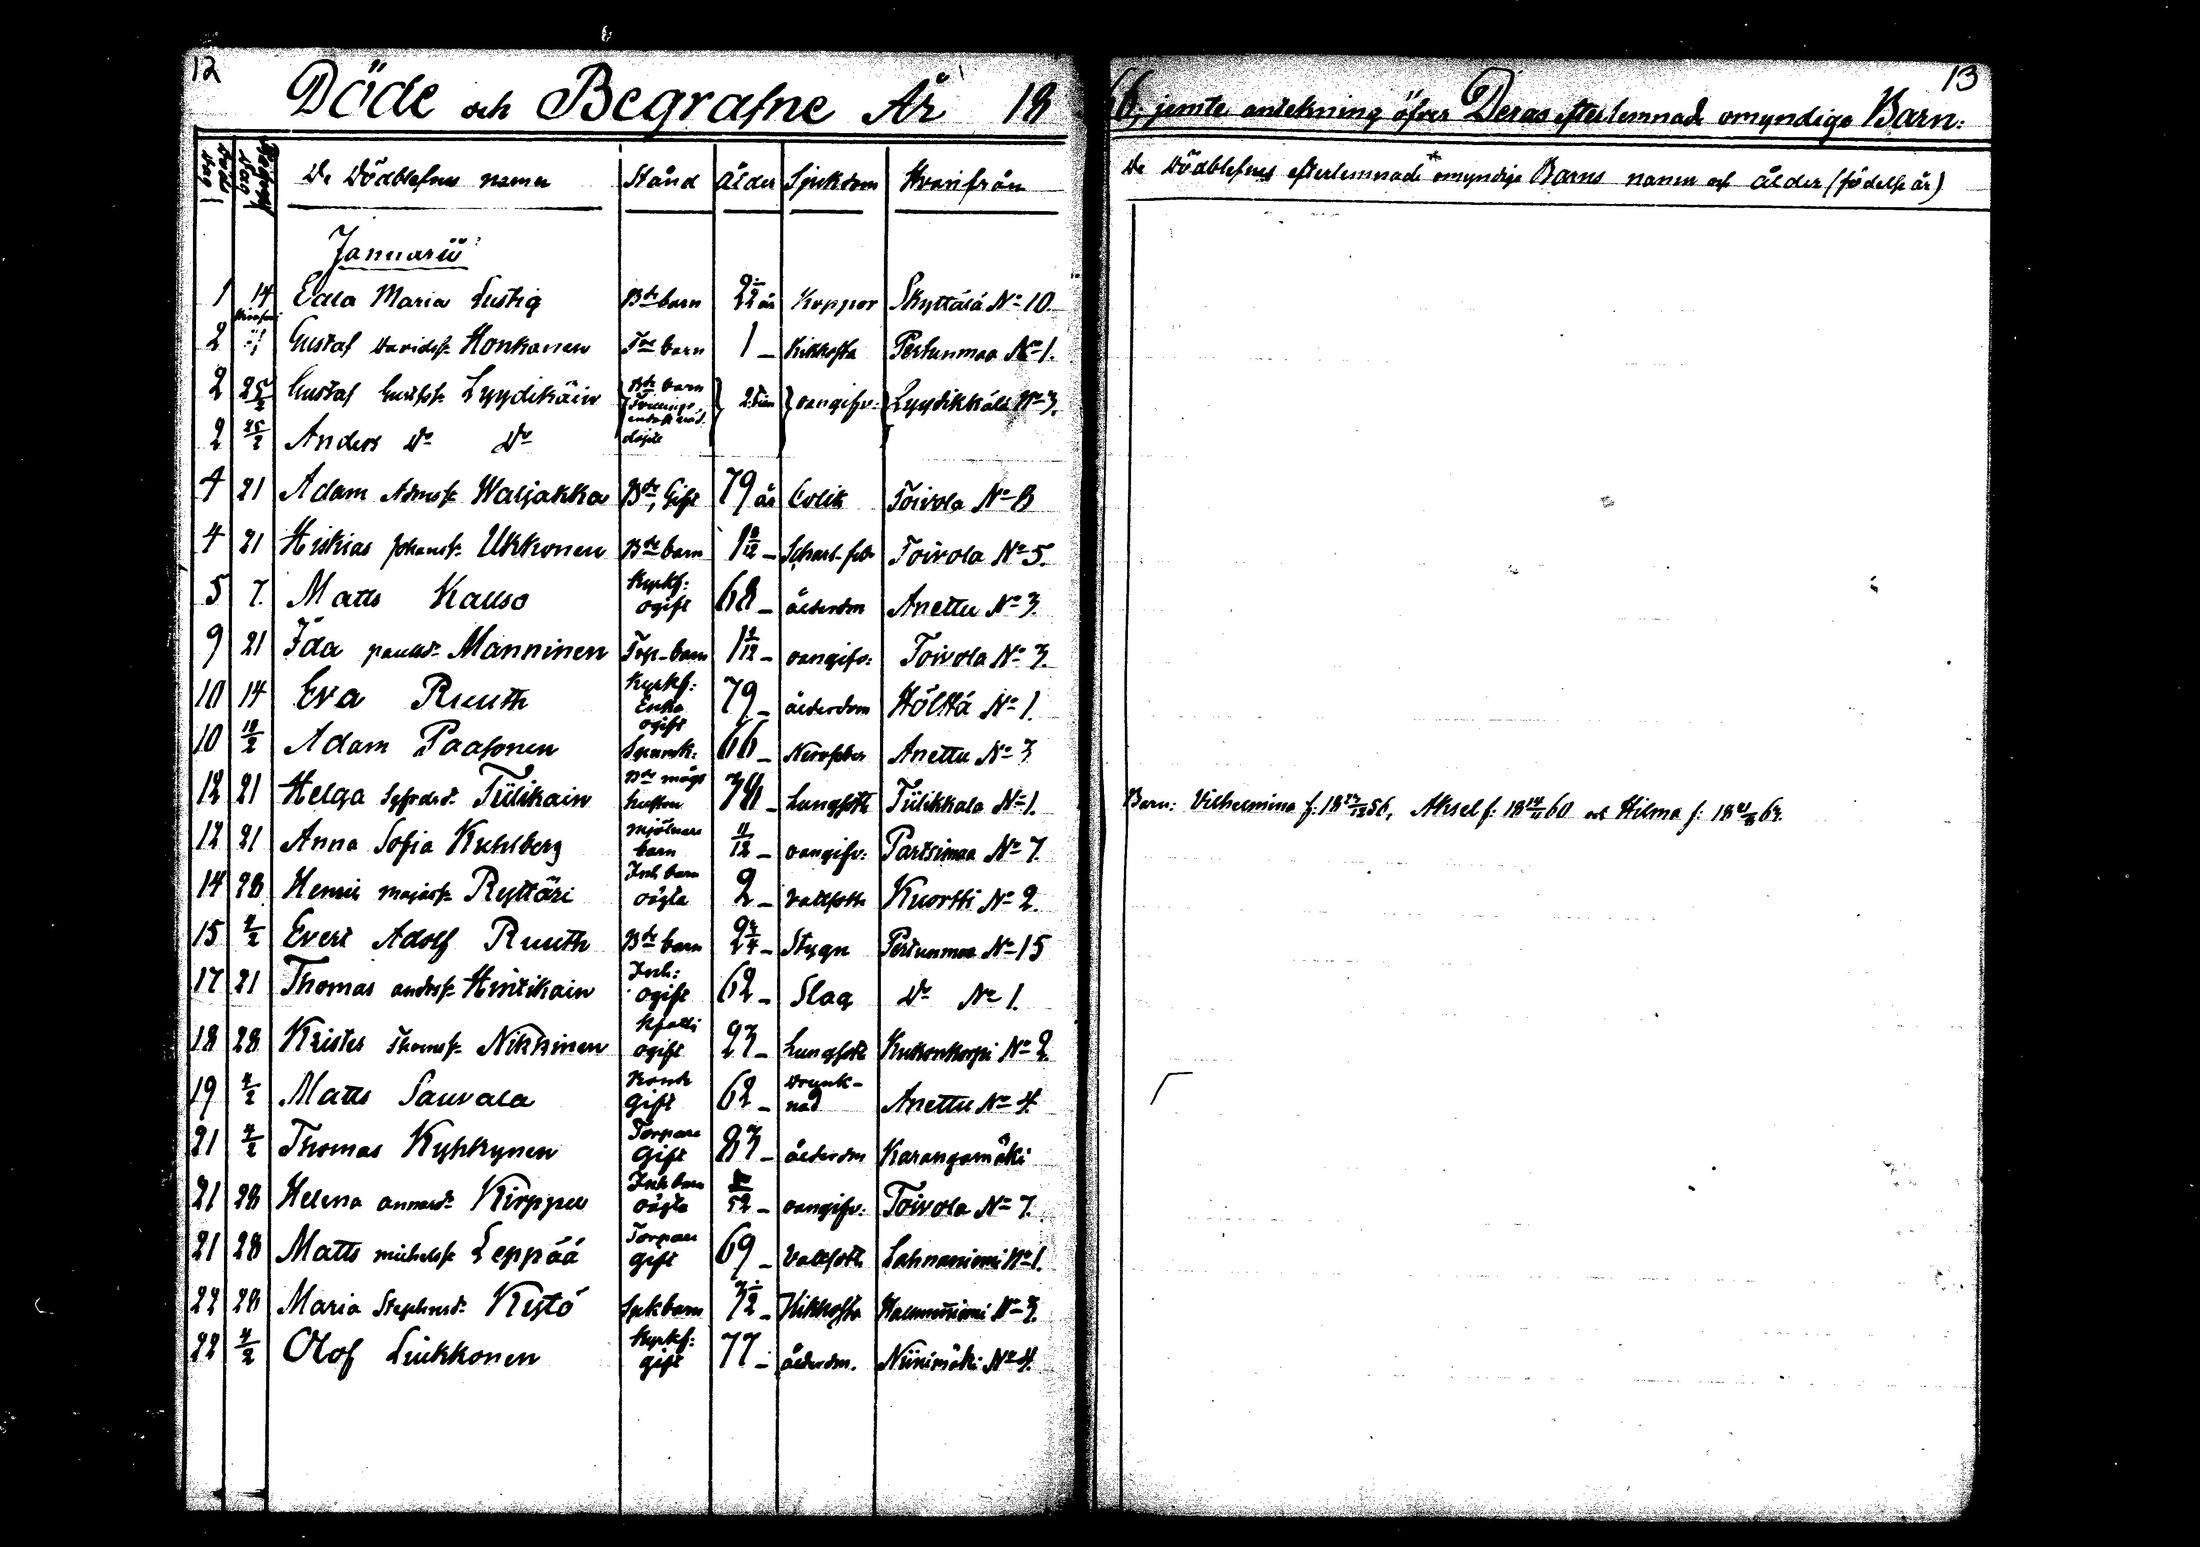 12
Döde och Begrafne År 18
De Dödblefnes namn Stånd Ålder Sjukdom Hvarifrån
Januarii
1 14 Edla Maria Lustig Bde barn 2½ år Koppor Skyttälä No 10
2 Gustaf Davidss. Honkanen Tre barn 1 Kikhosta Pertunmaa No 1.
2 25/2 Gustaf Gustfss. Lyydikäin Bde barn oangifv: Lyydikkälä No 3.
2 25/2 Anders Do Do
4 21 Adam Admss. Waljakka Bde, Gift 79 år Colik Toivola No 8
4 21 Hiskias Johanss. Ukkonen Bde barn Scharl. feb Toivola No 5.
5 7. Matts Kauso Kyrkf: ogift 68 ålderdom Anettu No 3.
9 21 Ida paulsd. Manninen Torp. barn oangifv: Toivola No 3.
10 14 Eva Ruuth Kyrkf: Enka 79 ålderdom Hölttä No 1.
10 18/2 Adam Paasonen ogift 66 Nervfeber Anettu No 3
12 21 Helga Tiilikain Bde mågs hustru Lungsot Tiilikkala No 1.
12 21 Anna Sofia Kuhlberg mjölnare barn 11/12 oangifv: Partsimaa No 7.
14 28 Henrik Ryttäri Inh barn oägta 2 Vattsot Kuortti No 2.
15 4/2 Evert Adolf Ruuth Bde barn Stygn Pertunmaa No 15
17 21 Thomas andss. Hintikain Inh: ogift 62 Slag Do No 1.
18 28 Krister Thomss. Nikkinen ogift 23 Lungsot Kukonkorpi No 2
19 4/2 Matts Sauvala gift 62 Drunknad Anettu No 4.
21 4/2 Thomas Kyhkynen Torpare Gift 83 ålderdm Karangamäki
21 28 Helena Kirppu Inh barn oägta oangifv: Toivola No 7.
21 28 Matts michelss. Leppää Torpare gift 69 Vattsot Lahnaniemi No 1.
22 28 Maria Stephansd. Kistö Spk barn 3½ Kikhosta No 3.
22 4/2 Olof Liukkonen Kyrkf: gift 77 ålderdm. Niinimäki No 4.
13
66, jemte antekning öfver Deras efterlemnade omyndige Barn:
De Dödblefnes efterlemnade omyndige Barns namn och ålder (födelse år)
Barn: Vilhelmina f: 56, Aksel f: 60 och Hilma f: 63.